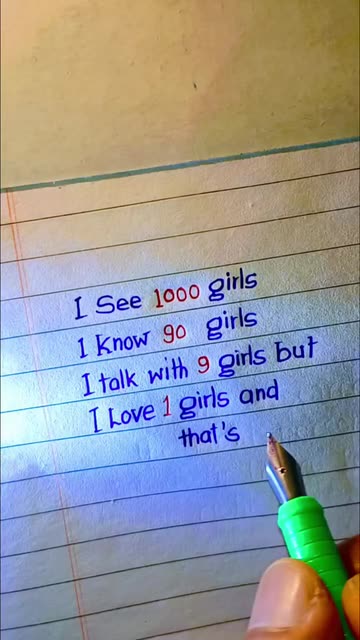 I See 1000 girls
I Know 90 girls
I talk with 9 girls but
I Love 1 girls and
that's